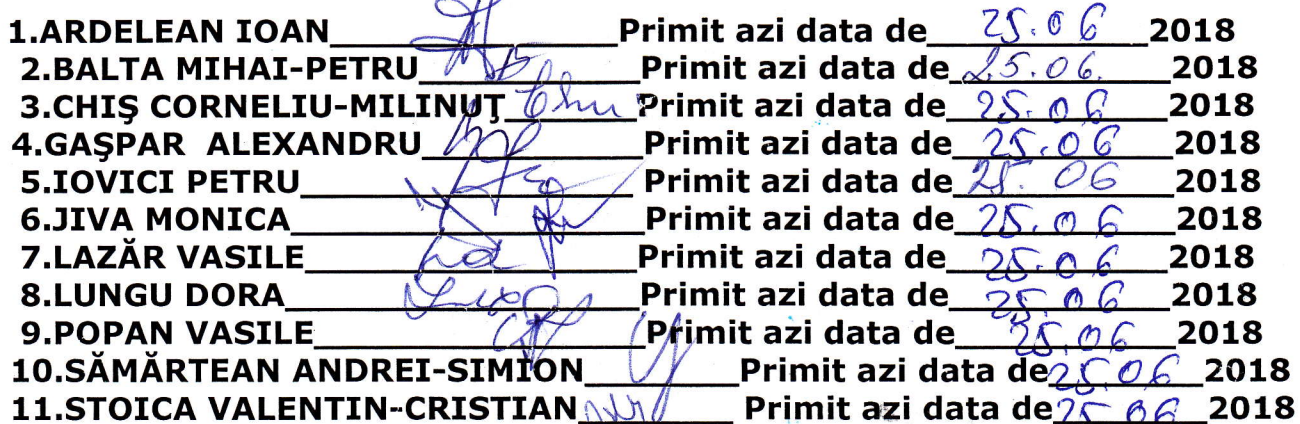 1.ARDELEAN IOAN____________________Primit azi data de 25.06 2018
2.BALTA MIHAI-PETRU_______________Primit azi data de 25.06. 2018
3.CHIŞ CORNELIU-MILINUŢ________Primit azi data de 25.06 2018
4.GAŞPAR ALEXANDRU_______________Primit azi data de 25.06 2018
5.IOVICI PETRU_______________________Primit azi data de 25.06 2018
6.JIVA MONICA________________________Primit azi data de 25.06 2018
7.LAZĂR VASILE_______________________Primit azi data de 25.06 2018
8.LUNGU DORA________________________Primit azi data de 25.06 2018
9.POPAN VASILE_______________________Primit azi data de 25.06 2018
10.SĂMĂRTEAN ANDREI-SIMION__________Primit azi data de 25.06 2018
11.STOICA VALENTIN-CRISTIAN__________ Primit azi data de 25 06 2018